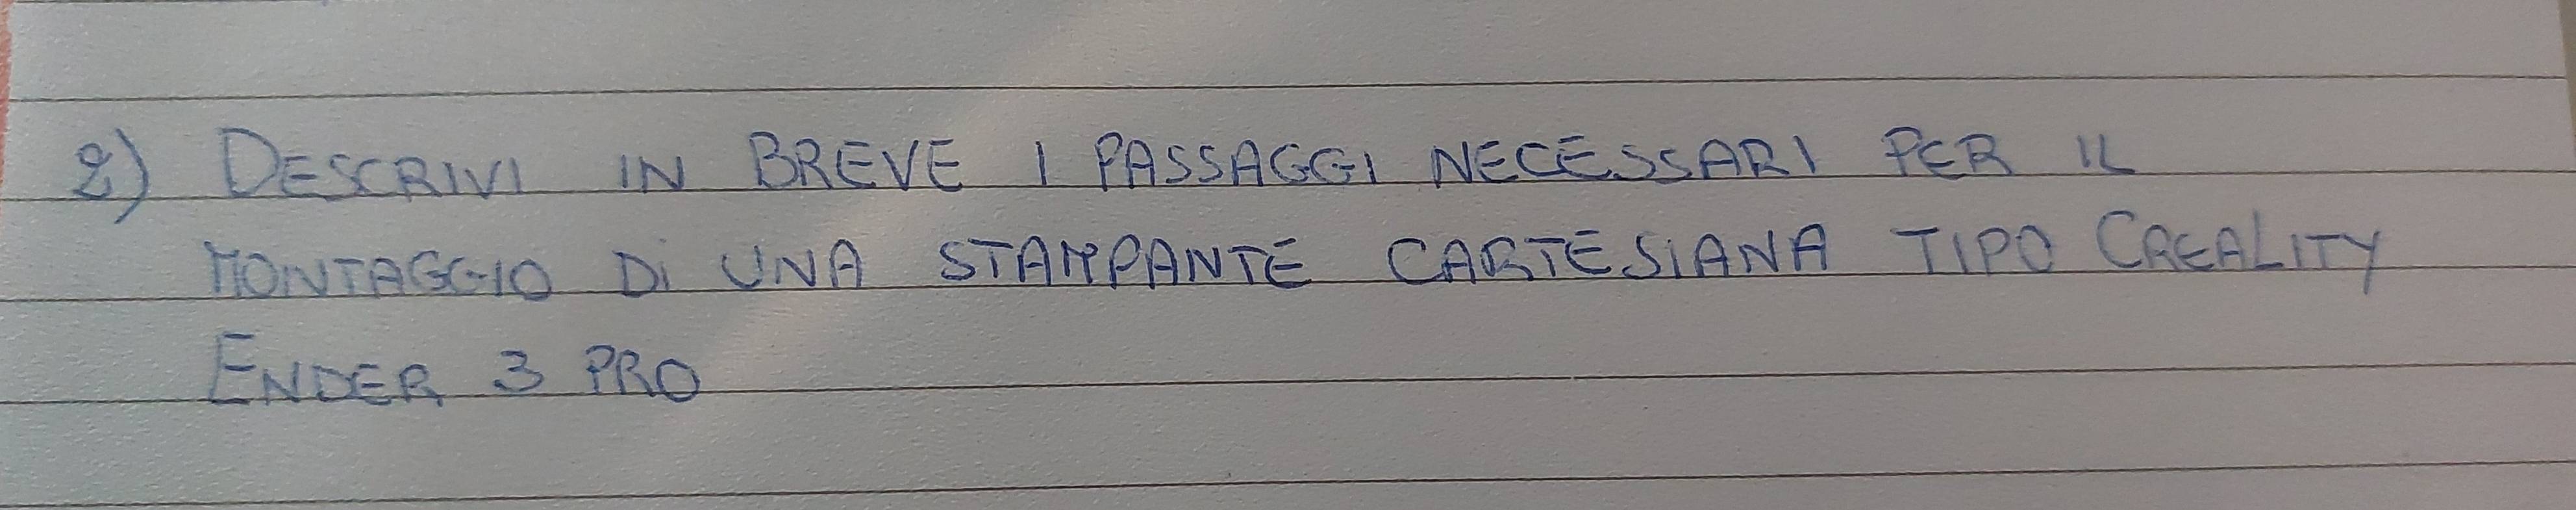 2) DESCRIVI IN BREVE I PASSAGGI NECESSARI PER IL
MONTAGGIO Di UNA STAMPANTE CARTESIANA TIPO CREALITY
ENDER 3 PRO